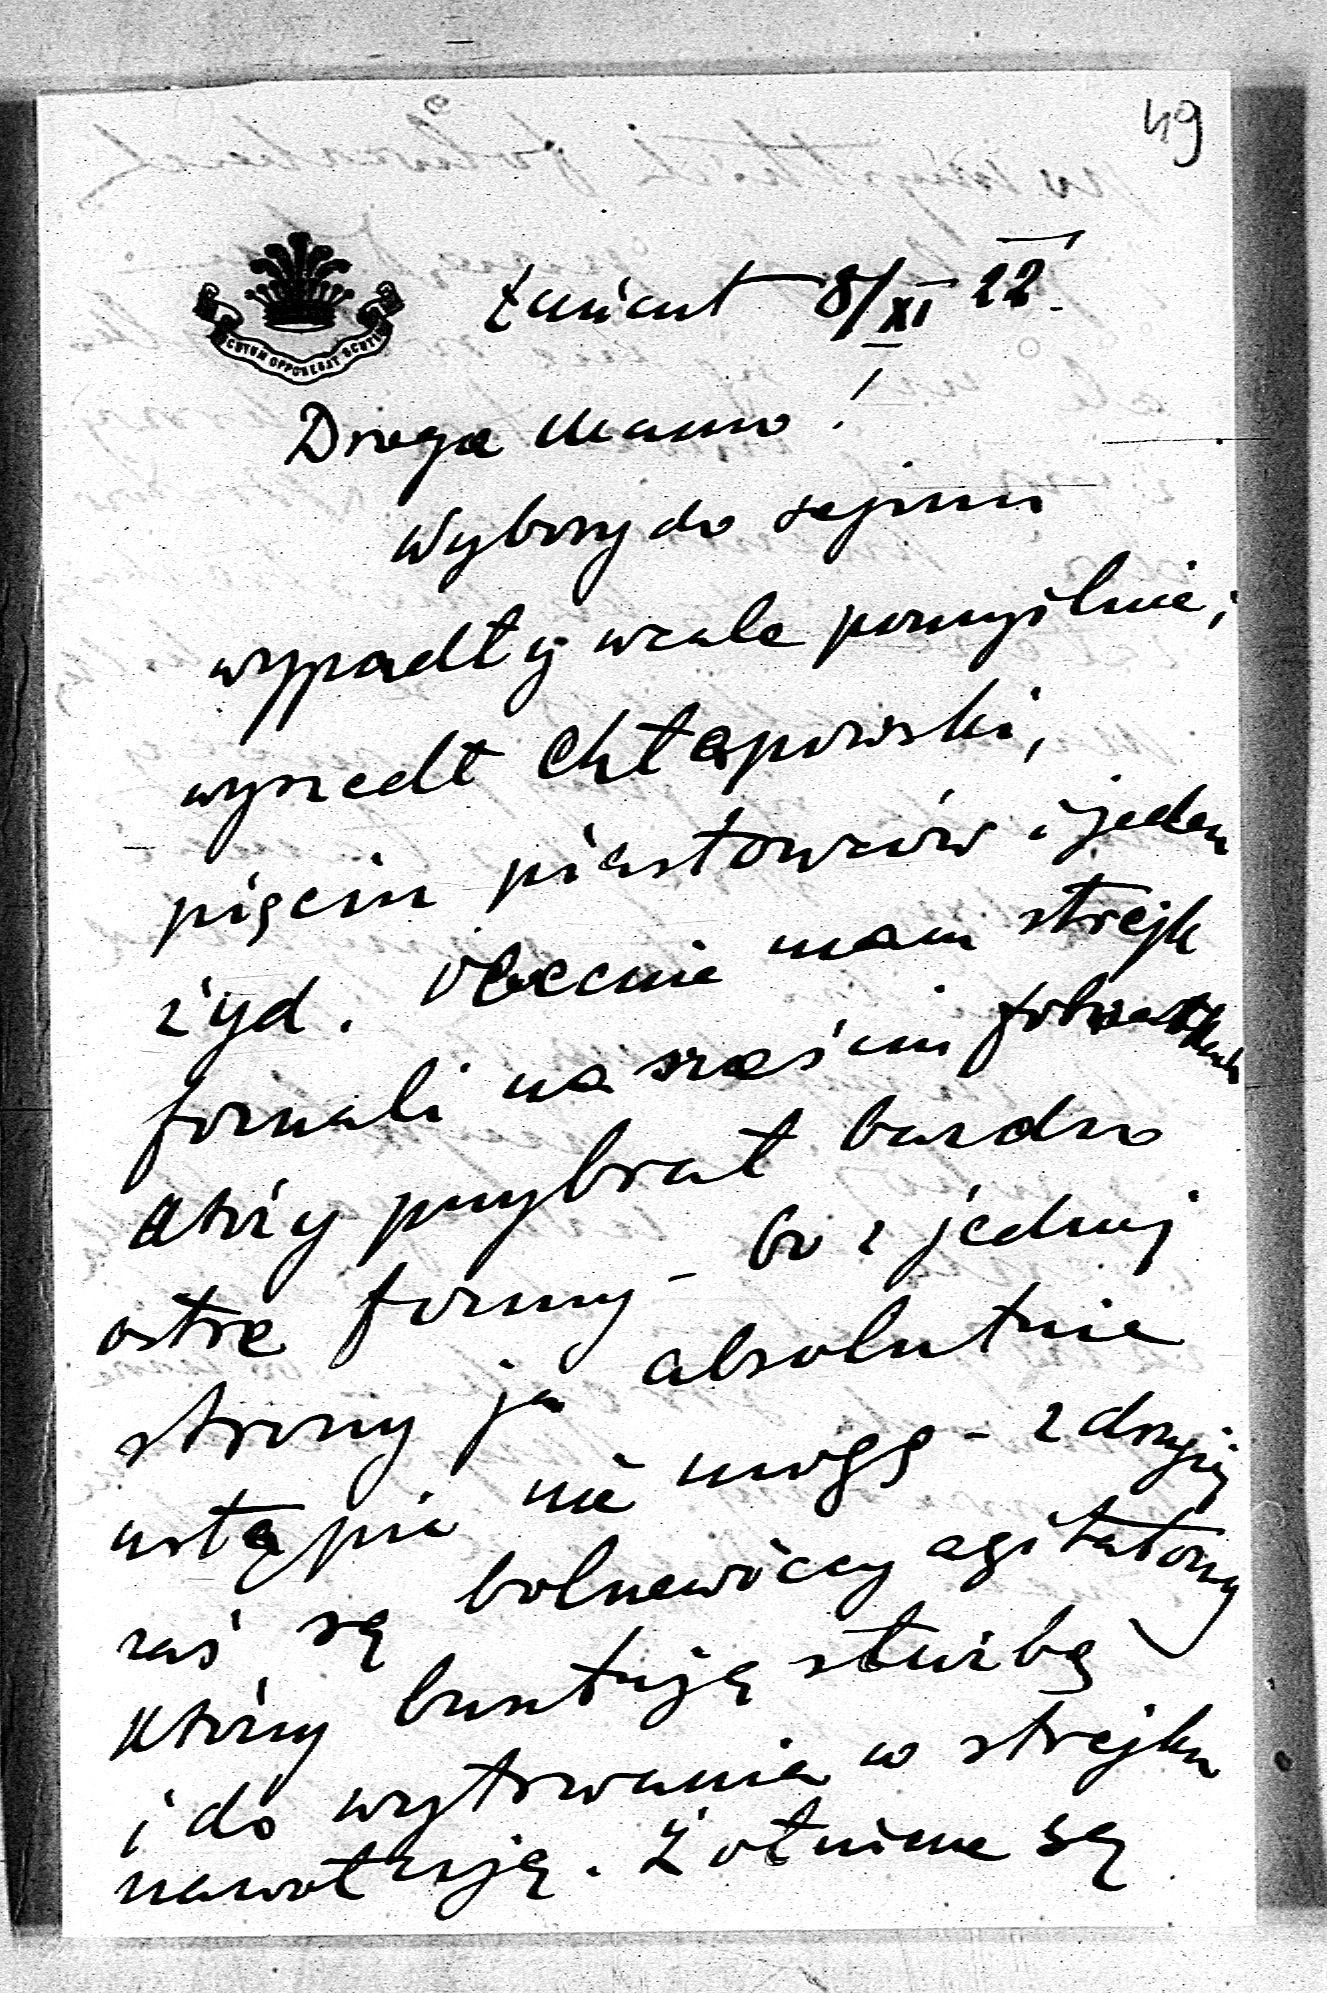 49
SCUTUM OPPONEBAT SCUTIS
Łańcut 8/XI 22.
Droga Mamo!
Wybory do sejmu
wypadły wcale pomyślnie;
wyszedł Chłapowski,
pięciu piastowców i jeden
żyd. Obecnie mam strejk
fornali na sześciu folwarkach
który przybrał bardzo
ostre formy – bo z jednej
strony ja absolutnie
ustąpić nie mogę – z drugiej
zaś są bolszewiccy agitatorzy
którzy buntują służbę
i do wytrwania w strejku
nawołują. Żołnierze są